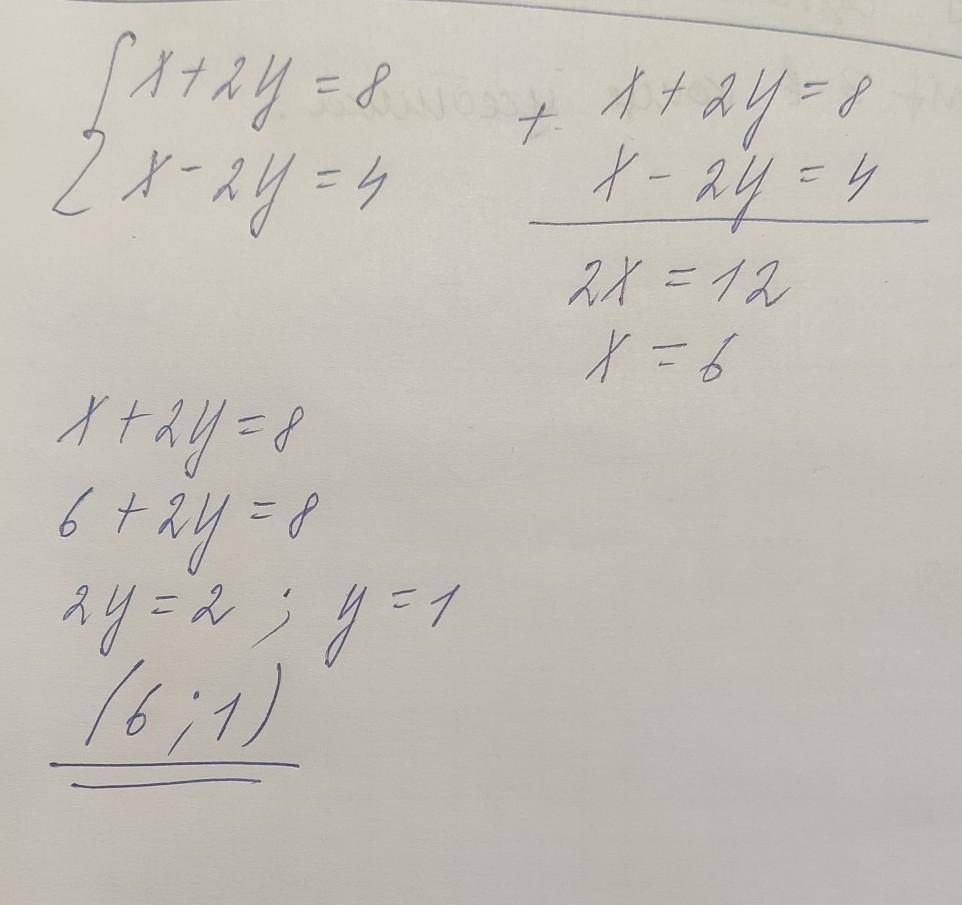 x + 2y = 8
x - 2y = 4
+ x + 2y = 8
x - 2y = 4
2x = 12
x = 6
x + 2y = 8
6 + 2y = 8
2y = 2 ; y = 1
(6 ; 1)